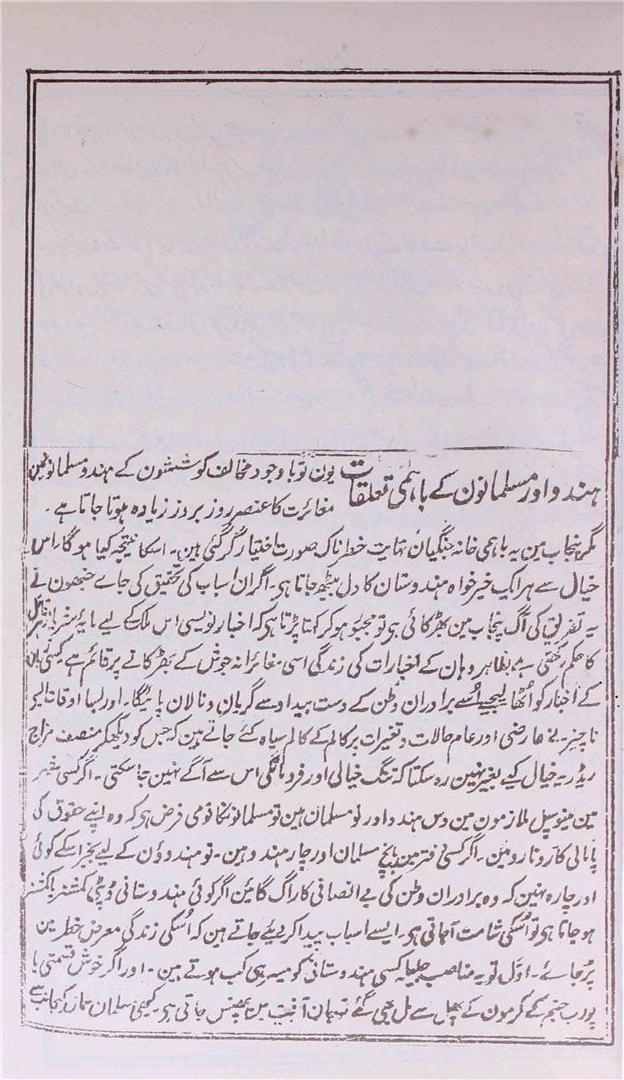 ہندو اور مسلمانون کے باہمی تعلقات یون تو باوجود مخالف کوششون کے ہندو مسلمانونمین
مغائرت کا عنصر روز بروز زیادہ ہوتا جاتا ہے۔
مگر پنجاب مین یہ باہمی خانہ جنگیان نہایت خطرناک صورت اختیار کر گئی ہین۔ اسکا نتیجہ کیا ہوگا، اس
خیال سے ہر ایک خیر خواہ ہندوستان کا دل بیٹھ جاتا ہی۔ اگر ان اسباب کی تحقیق کی جاے جنھون نے
یہ تفریق کی آگ پنجاب مین بھڑکائی ہی تو مجبور ہو کر کہنا پڑتا ہی کہ اخبار نویسی اس ملک کے لیے
کا حکم رکھتی ہے۔ بظاہر وہان کے اخبارات کی زندگی اسی مغائرانہ جوش کے بھڑکانے پر قائم ہے کسی
کے اخبار کو اٹھا لیجیے اُسے برادران وطن کے دست بیداد سے گریان و نالان پائیگا۔ اور بسا اوقات ایسے
ناچیز۔ بے عارضی اور عام حالات و تغیرات پر کالم کے کالم سیاہ کئے جاتے ہین کہ جس کو دیکھکر منصف مزاج
ریڈر یہ خیال کیے بغیر نہین رہ سکتا کہ تنگ خیالی اور فرومائگی اس سے آگے نہین جا سکتی۔ اگر کسی شہر
مین میونسپل ملازمون مین دس ہندو اور نو مسلمان ہین تو مسلمانونکا قومی فرض ہی کہ وہ اپنے حقوق کی
پامالی کا رونا روئین۔ اگر کسی دفتر مین پانچ مسلمان اور چار ہندو ہین۔ تو ہندوؤن کے لیے بجز اسکے کوئی
اور چارہ نہین کہ وہ برادران وطن کی بے انصافی کا راگ گائین اگر کوئی ہندوستانی ڈپٹی کمشنر یا کمشنر
ہو جاتا ہی تو اُسکی شامت آجاتی ہی۔ ایسے اسباب پیدا کر دیئے جاتے ہین کہ اُسکی زندگی معرض خطر مین
پڑ جائے۔ اول تو یہ مناصب جلیلہ کسی ہندوستانی کو میسر ہی کب ہوتے ہین۔ اور اگر خوش قسمتی یا
پورب جنم کے کرمون کے پھل سے مل بھی گئے تو جان آفت مین پھنس جاتی ہی۔ کبھی مسلمان